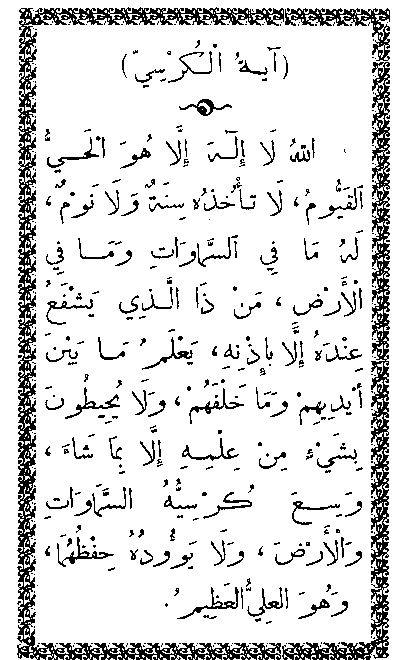 (آيةُ الْكُرْسِيّ)
اللهُ لَا إِلَهَ إِلَّا هُوَ الْحَيُّ
الْقَيُّومُ، لَا تَأْخُذُهُ سِنَةٌ وَلَا نَوْمٌ،
لَهُ مَا فِي السَّمَاوَاتِ وَمَا فِي
الْأَرْضِ، مَنْ ذَا الَّذِي يَشْفَعُ
عِنْدَهُ إِلَّا بِإِذْنِهِ، يَعْلَمُ مَا بَيْنَ
أَيْدِيهِمْ وَمَا خَلْفَهُمْ، وَلَا يُحِيطُونَ
بِشَيْءٍ مِنْ عِلْمِهِ إِلَّا بِمَا شَاءَ،
وَسِعَ كُرْسِيُّهُ السَّمَاوَاتِ
وَالْأَرْضَ، وَلَا يَؤُودُهُ حِفْظُهُمَا،
وَهُوَ العَلِيُّ العَظِيمُ.